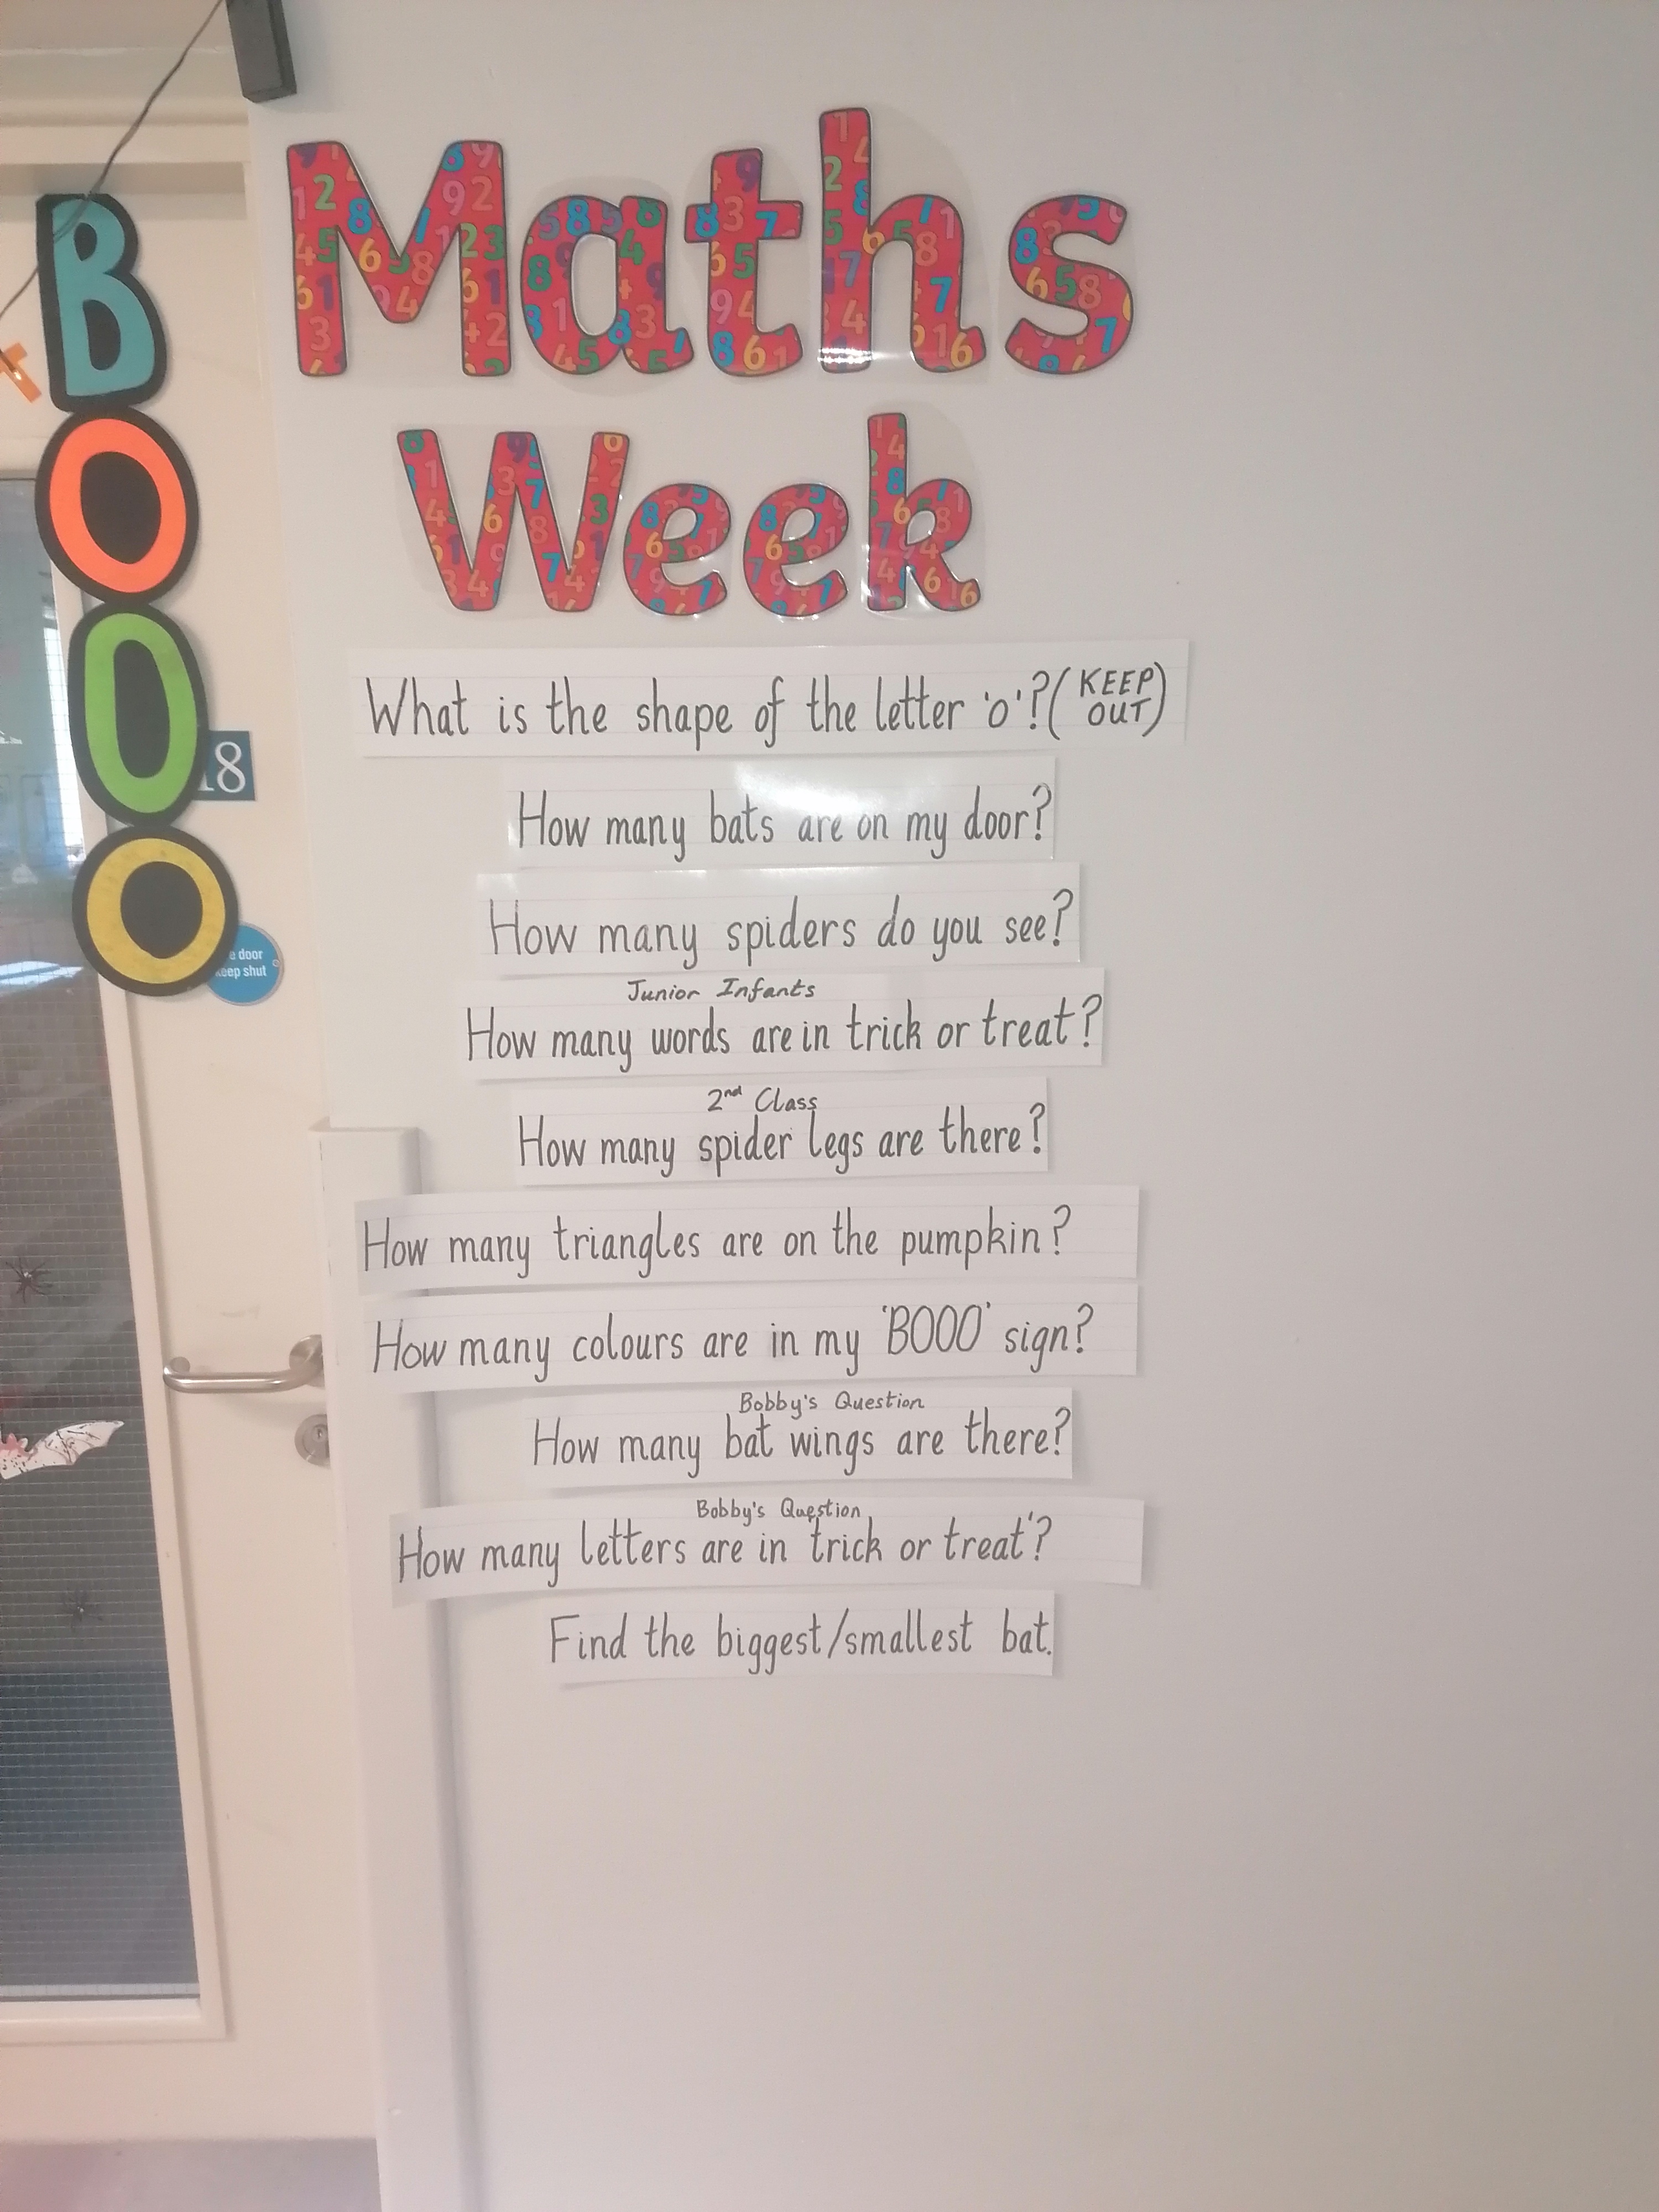 BOOO
Maths
Week
18
door
keep shut
What is the shape of the letter 'o'? (KEEP OUT)
How many bats are on my door?
How many spiders do you see?
Junior Infants
How many words are in trick or treat?
2nd Class
How many spider legs are there?
How many triangles are on the pumpkin?
How many colours are in my 'BOOO' sign?
Bobby's Question
How many bat wings are there?
Bobby's Question
How many letters are in trick or treat'?
Find the biggest/smallest bat.